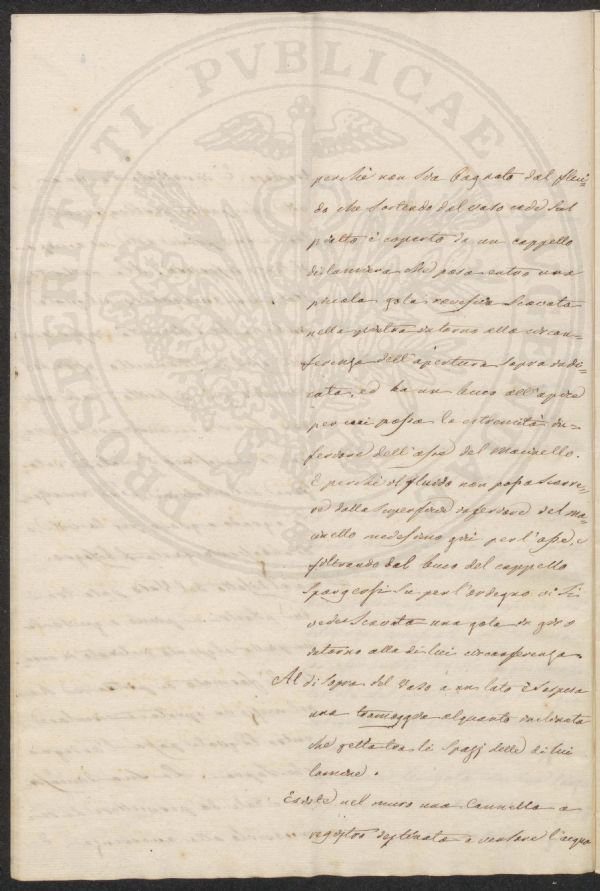 PROSPERITATI PVBLICAE
perchè non sia bagnato dal flui-
do che sortendo dal vaso cade sul
piatto è coperto da un cappello
di lamiera che posa entro una
piccola gola rovescia scavata
nella pietra intorno alla circon-
ferenza dell'apertura sopra indi-
cata, ed ha un buco all'apice
per cui passa la estremità in-
feriore dell'asse del macinello.
E perchè il fluido non possa scorre-
re dalla superficie inferiore del ma-
cinello medesimo giù per l'asse, e
filtrando dal buco del cappello
spargersi su per l'ordegno vi si
vede scavata una gola in giro
intorno alla di lui circonferenza.
Al di sopra del vaso a un lato è sospesa
una tramoggia alquanto inclinata
che getta tra li spazj delle di lui
lamine.
Esiste nel muro una cannella a
registro destinata a versare l'acqua